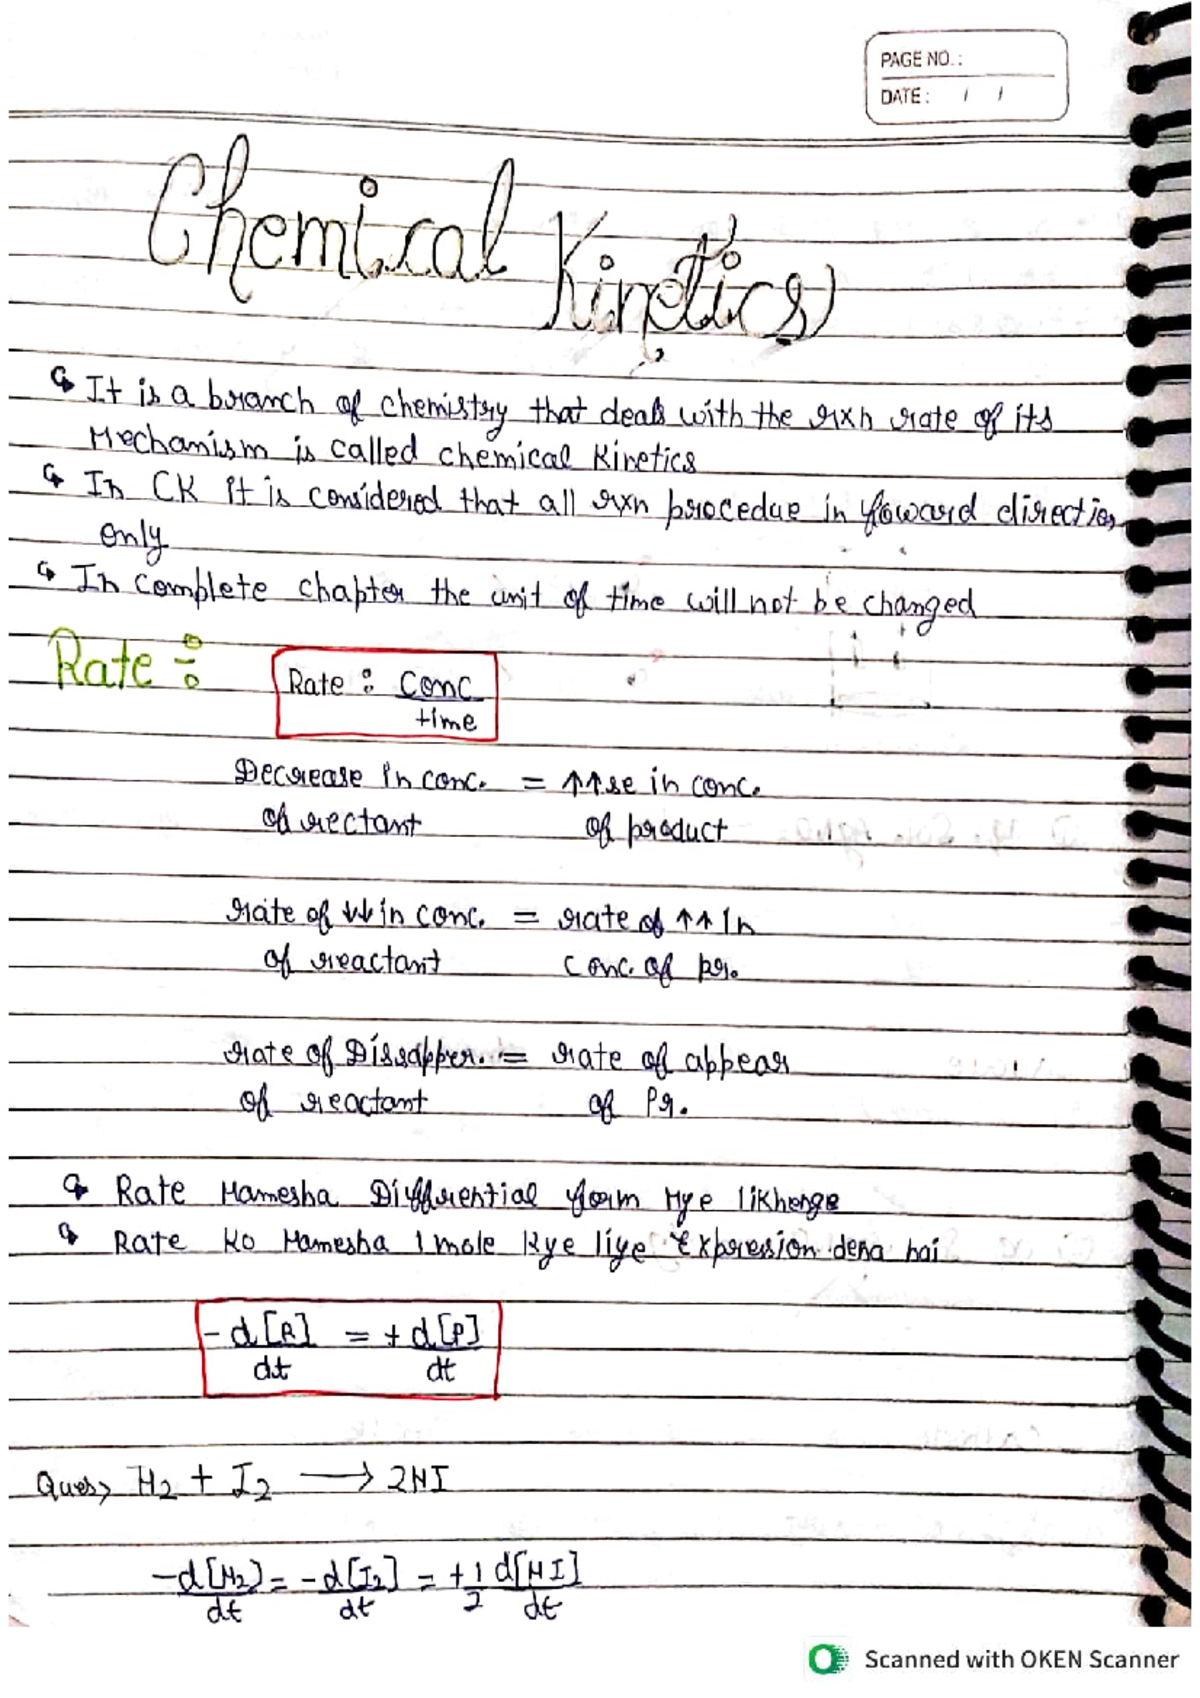 PAGE NO.:
DATE: / /
Chemical Kinetics
↳ It is a branch of chemistry that deals with the rxn rate of its
Mechanism is called chemical Kinetics
↳ In CK it is considered that all rxn procedue in foward direction
only
↳ In complete chapter the unit of time will not be changed
Rate :
Rate : Conc
time
Decrease in conc. = ↑↑se in conc.
of rectant of product
rate of ↓↓ in conc. = rate of ↑↑ In
of reactant conc. of pr.
rate of Dissapper. = rate of appear
of reactant of Pr.
↳ Rate Hamesha Diffrential form Mye likhenge
↳ Rate Ko Hamesha 1 mole Kye liye Expression dena hai
- d[R] = + d[P]
dt dt
Ques> H2 + I2 → 2HI
-d[H2] = -d[I2] = +1 d[HI]
dt dt 2 dt
Scanned with OKEN Scanner